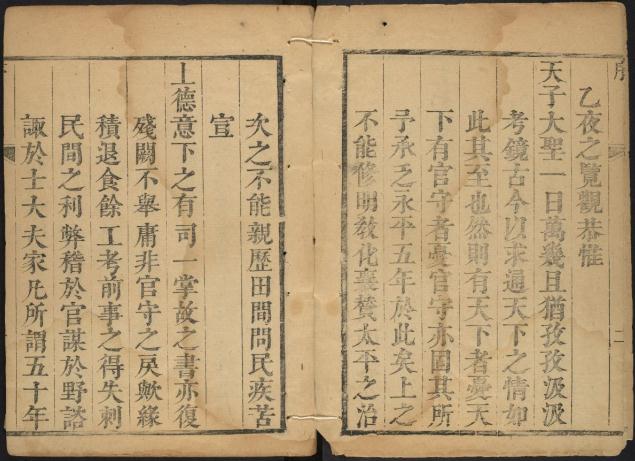 序
二
乙夜之覽觀恭惟
天子大聖一日萬幾且猶孜孜汲汲
考鏡古今以求通天下之情如
此其至也然則有天下者憂天
下有官守者憂官守亦固其所
予承乏永平五年於此矣上之
不能修明敎化襄賛太平之治
次之不能親歷田間問民疾苦
宣
上德意下之有司一掌故之書亦復
殘闕不舉庸非官守之戾歟緣
積退食餘工考前事之得失刺
民間之利弊稽於官謀於野諮
諏於士大夫家凡所謂五十年